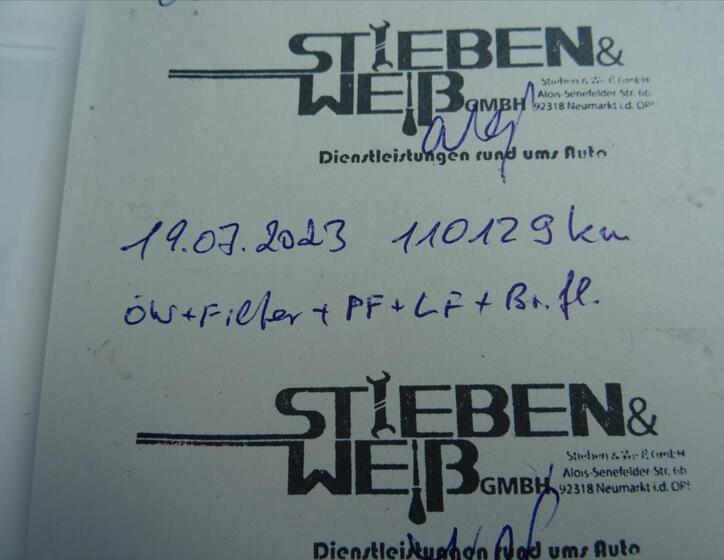 STIEBEN &
WEIß GMBH
Stieben & Weiß GmbH
Alois-Senefelder Str. 6b
92318 Neumarkt i.d. OPf
Dienstleistungen rund ums Auto
19.07.2023 110129 km
ÖW+Filter + PF + LF + Br.fl.
STIEBEN &
WEIß GMBH
Stieben & Weiß GmbH
Alois-Senefelder Str. 6b
92318 Neumarkt i.d. OPf
Dienstleistungen rund ums Auto